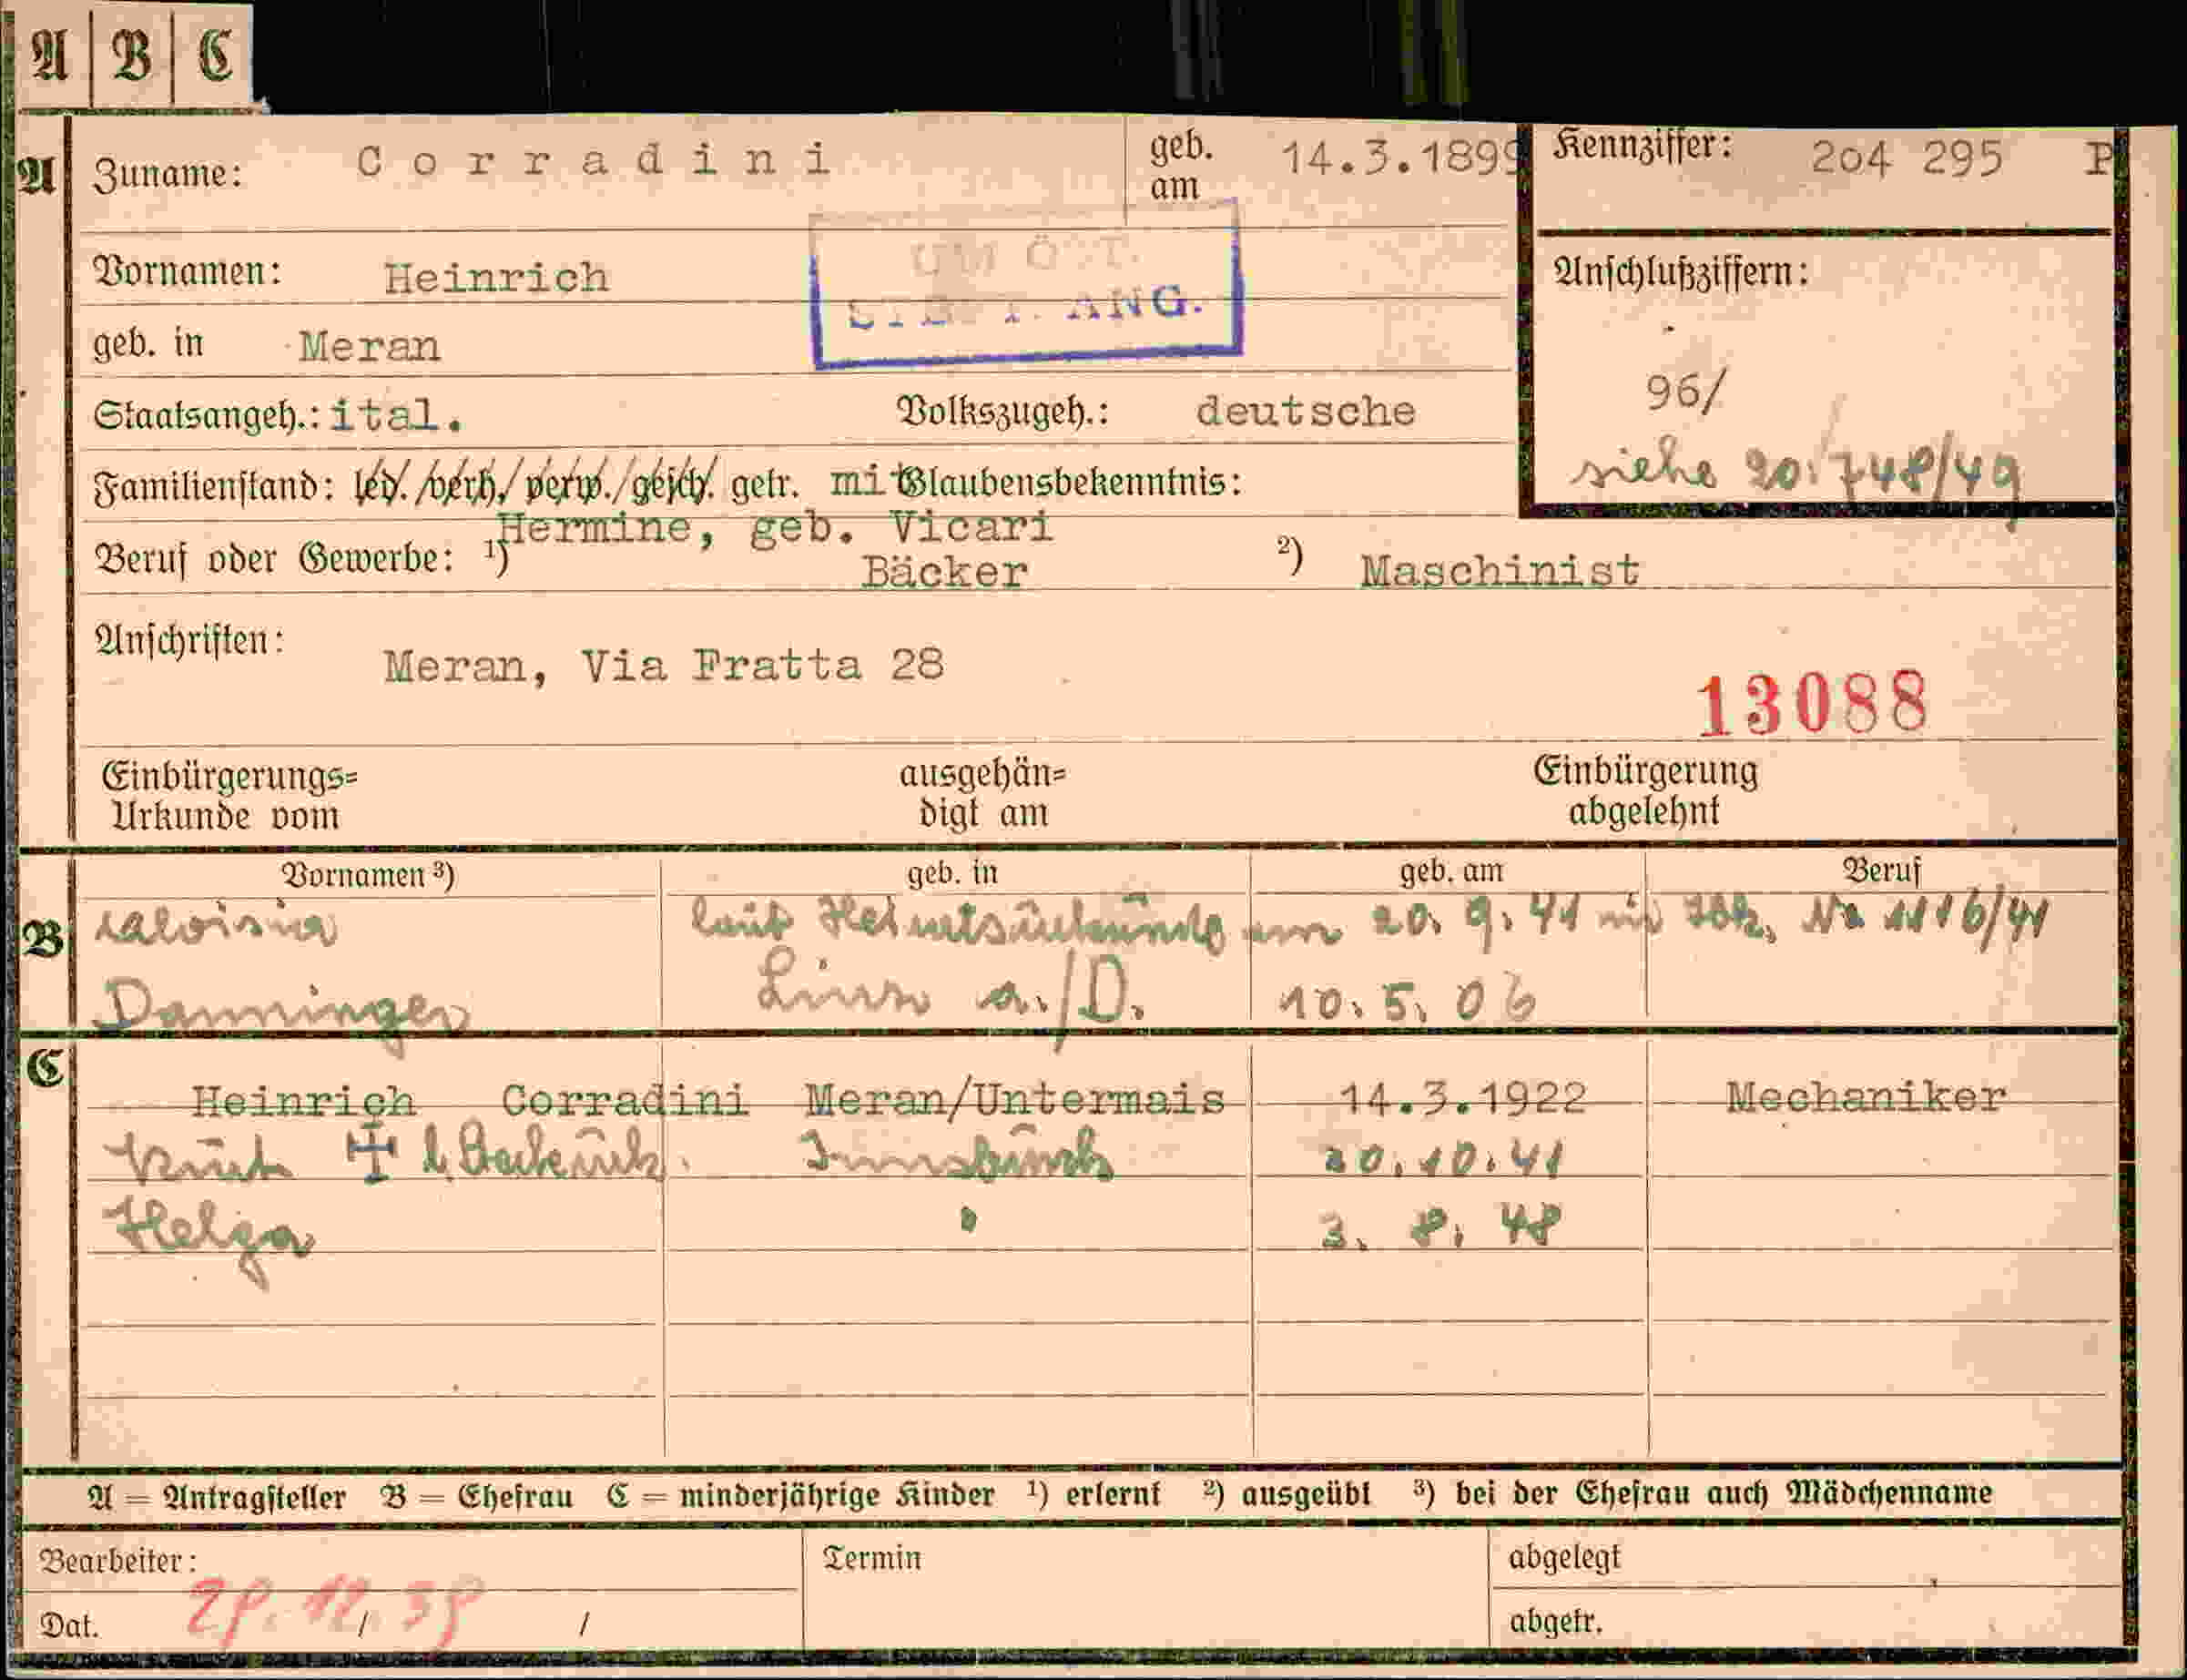 A B C
A Zuname: Corradini geb. am 14.3.1899 Kennziffer: 2o4 295 P
Vornamen: Heinrich
Anschlußziffern:
geb. in Meran
96/
Staatsangeh.: ital. Volkszugeh.: deutsche
siehe 20.748/49
Familienstand: led./verh./verw./gesch. getr. mit Glaubensbekenntnis:
Hermine, geb. Vicari
Beruf oder Gewerbe: 1) Bäcker 2) Maschinist
Anschriften: Meran, Via Fratta 28
13088
Einbürgerungs= ausgehän= Einbürgerung
Urkunde vom digt am abgelehnt
B Vornamen 3) geb. in geb. am Beruf
Aloisia laut am 20.9.41 Nr. 1116/41
Danninger Linz a./D. 10.5.06
C
Heinrich Corradini Meran/Untermais 14.3.1922 Mechaniker
Kurt Innsbruck 20.10.41
Helga 3.8.48
A = Antragsteller B = Ehefrau C = minderjährige Kinder 1) erlernt 2) ausgeübt 3) bei der Ehefrau auch Mädchenname
Bearbeiter: Termin abgelegt
Dat. 29.12.39 / / abgetr.